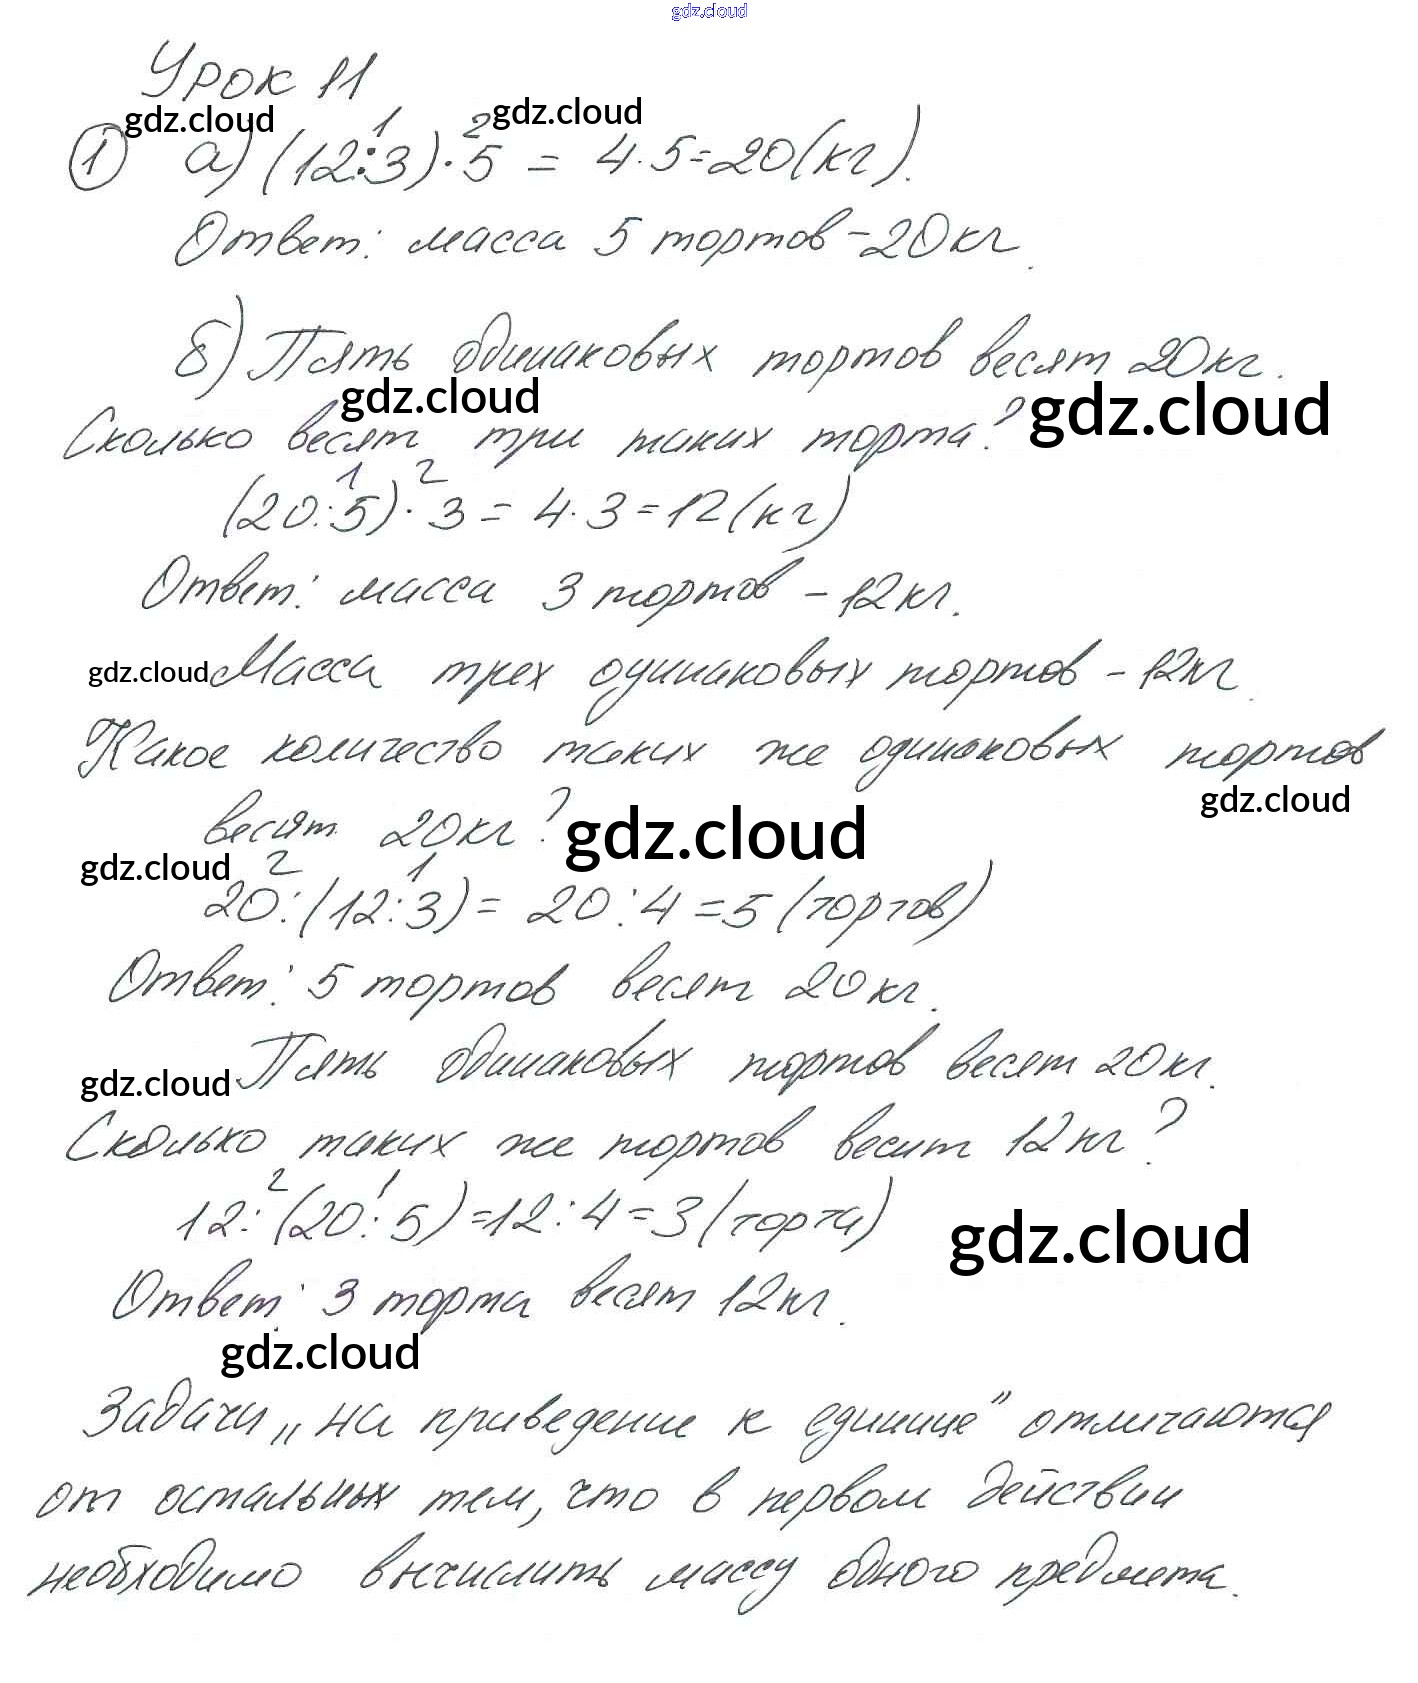 gdz.cloud
Урок 11
gdz.cloud gdz.cloud
1 2
① а) (12:3)·5 = 4·5=20(кг).
Ответ: масса 5 тортов - 20кг.
б) Пять одинаковых тортов весят 20кг.
gdz.cloud gdz.cloud
Сколько весят три таких торта?
1 2
(20:5)·3 = 4·3=12(кг)
Ответ: масса 3 тортов - 12кг.
gdz.cloud Масса трех одинаковых тортов - 12кг.
Какое количество таких же одинаковых тортов
gdz.cloud
весят 20кг? gdz.cloud
gdz.cloud 2 1
20:(12:3)= 20:4=5(тортов)
Ответ: 5 тортов весят 20кг.
gdz.cloud Пять одинаковых тортов весят 20кг.
Сколько таких же тортов весит 12кг?
2 1
12:(20:5)=12:4=3(торта)
gdz.cloud
Ответ: 3 торта весят 12кг.
gdz.cloud
Задачи „на приведение к единице" отличаются
от остальных тем, что в первом действии
необходимо вычислить массу одного предмета.